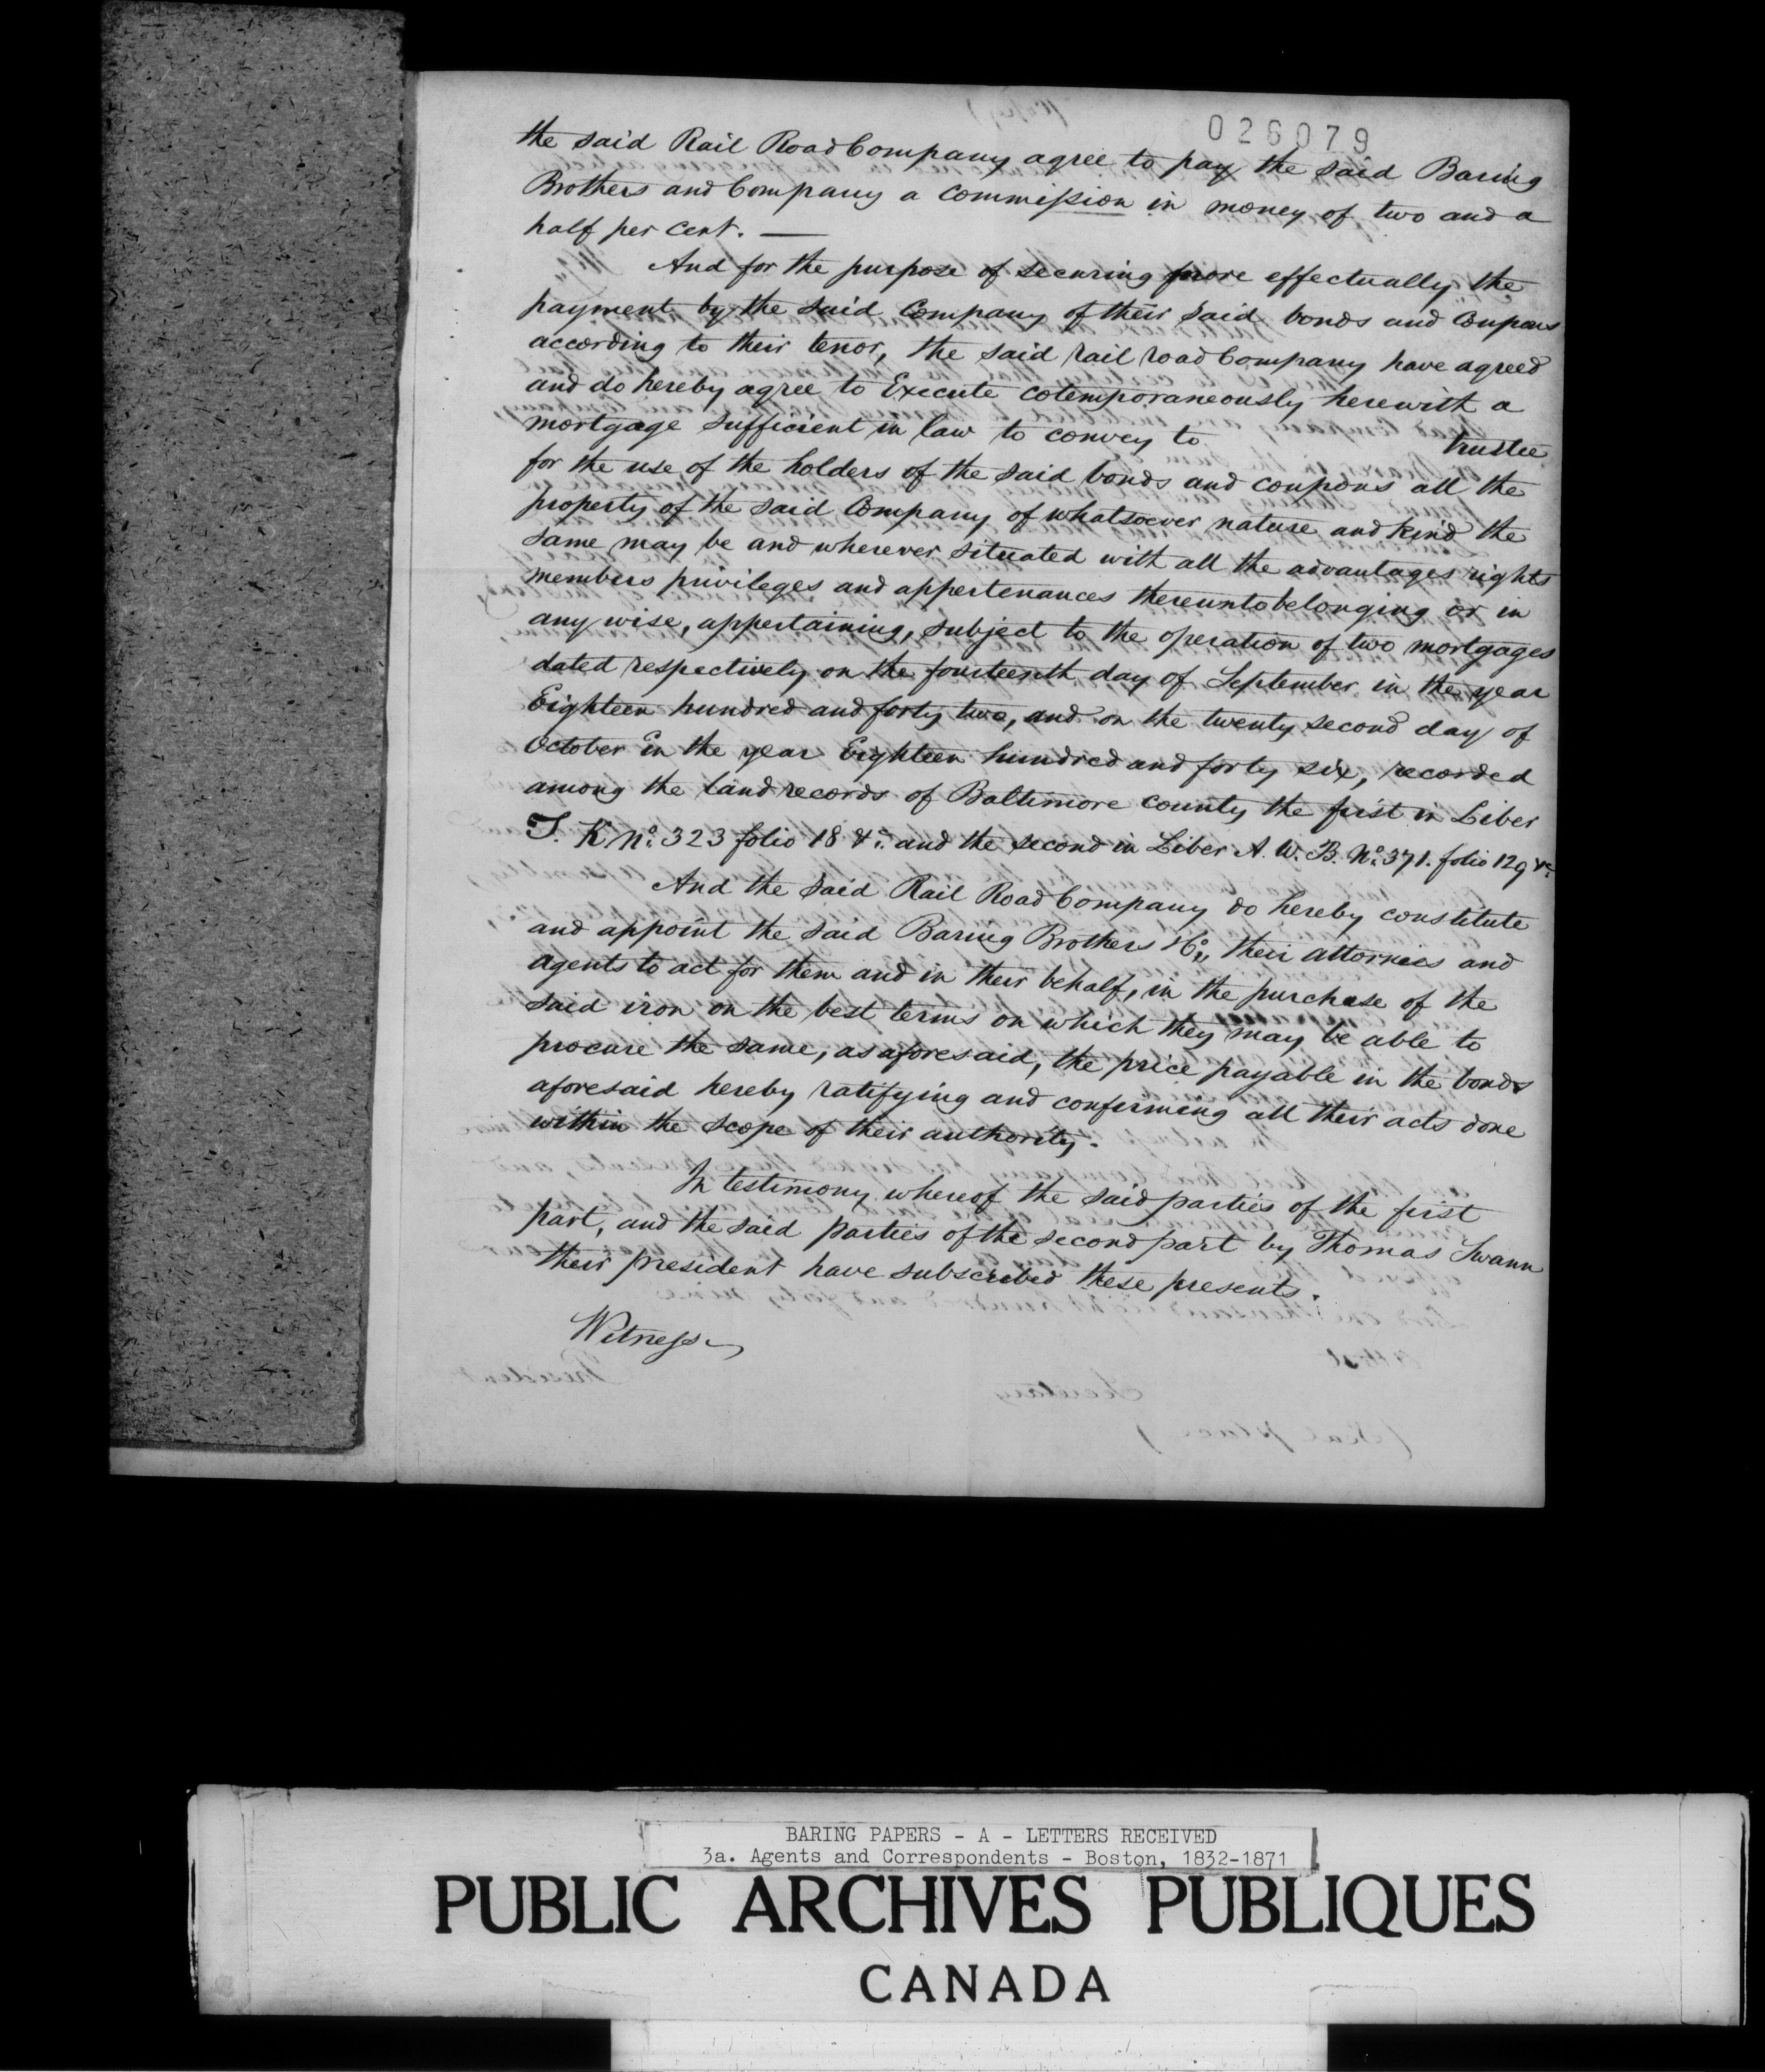 026079
the said Rail Road Company agree to pay the said Baring
Brothers and Company a commission in money of two and a
half per cent. —
And for the purpose of securing more effectually the
payment by the said Company of their said bonds and Coupons
according to their tenor, the said rail road Company have agreed
and do hereby agree to Execute cotemporaneously herewith a
mortgage sufficient in law to convey to trustee
for the use of the holders of the said bonds and coupons all the
property of the said Company of whatsoever nature and kind the
same may be and wherever situated with all the advantages rights
members privileges and appertenances thereunto belonging or in
any wise, appertaining, subject to the operation of two mortgages
dated respectively on the fourteenth day of September in the year
Eighteen hundred and forty two, and on the twenty second day of
October in the year Eighteen hundred and forty six, recorded
among the land records of Baltimore county the first in Liber
T. K No. 323 folio 18 &c. and the second in Liber A. W. B. No. 371. folio 129 &c.
And the said Rail Road Company do hereby constitute
and appoint the said Baring Brothers & Co., their attornies and
agents to act for them and in their behalf, in the purchase of the
said iron on the best terms on which they may be able to
procure the same, as aforesaid, the price payable in the bonds
aforesaid hereby ratifying and confirming all their acts done
within the scope of their authority.
In testimony whereof the said parties of the first
part, and the said parties of the second part by Thomas Swann
their president have subscribed these presents.
Witness
BARING PAPERS - A - LETTERS RECEIVED
3a. Agents and Correspondents - Boston, 1832-1871
PUBLIC ARCHIVES PUBLIQUES
CANADA